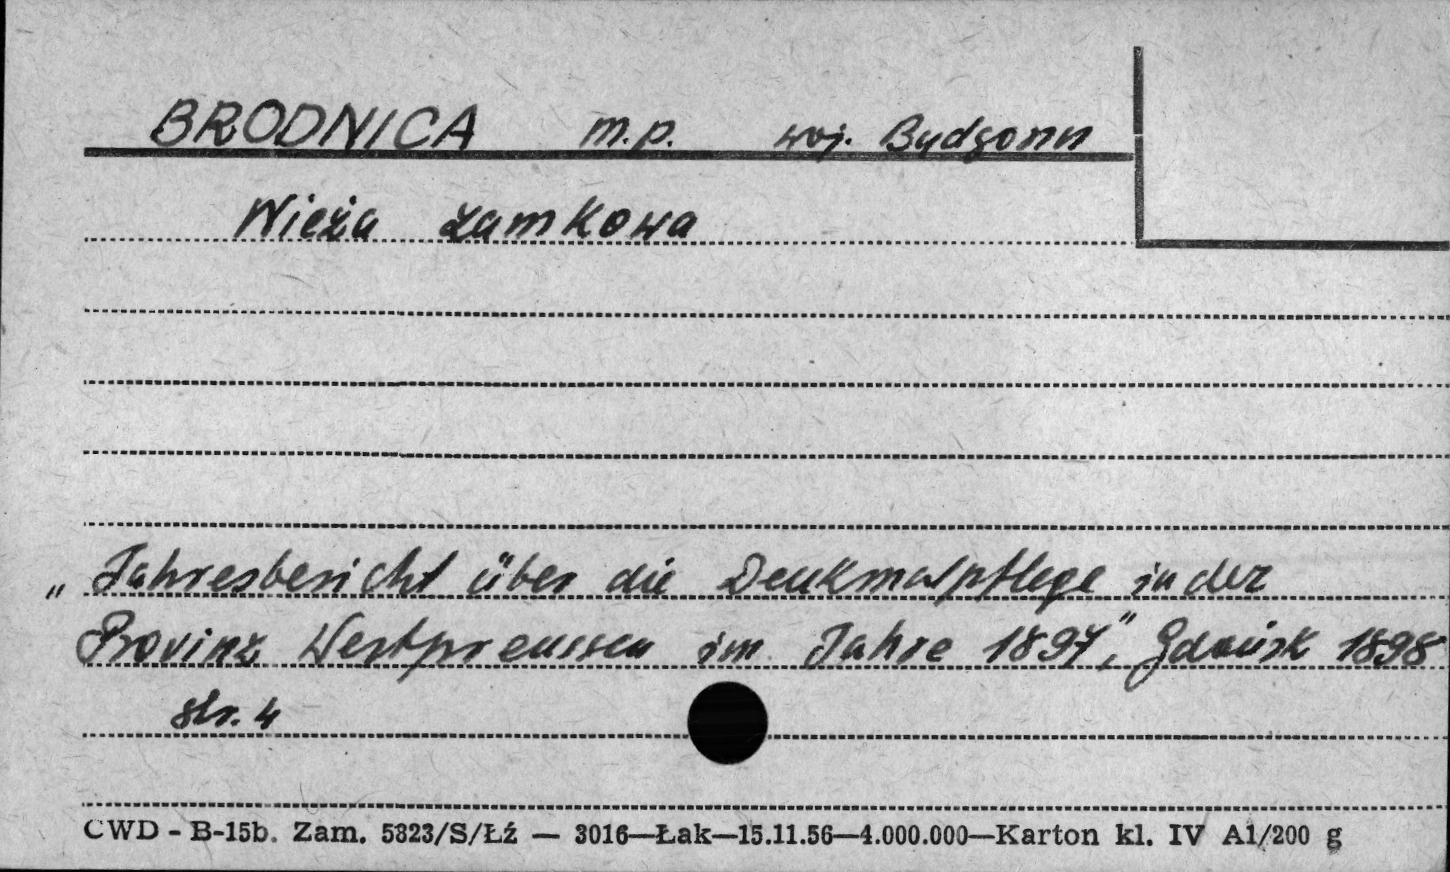 BRODNICA m.p. woj. Bydgoszcz
Wieża zamkowa
„Jahresbericht über die Denkmalpflege in der
Provinz Westpreussen im Jahre 1897", Gdańsk 1898
str. 4
CWD - B-15b. Zam. 5323/S/Łź — 3016—Łak—15.11.56—4.000.000—Karton kl. IV A1/200 g